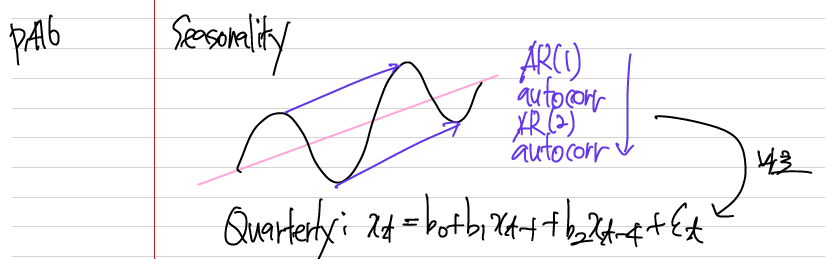 pA16
Seasonality
AR(1)
autocorr
AR(2)
autocorr
Quarterly: xt = b0+b1xt-1+b2xt-4+εt